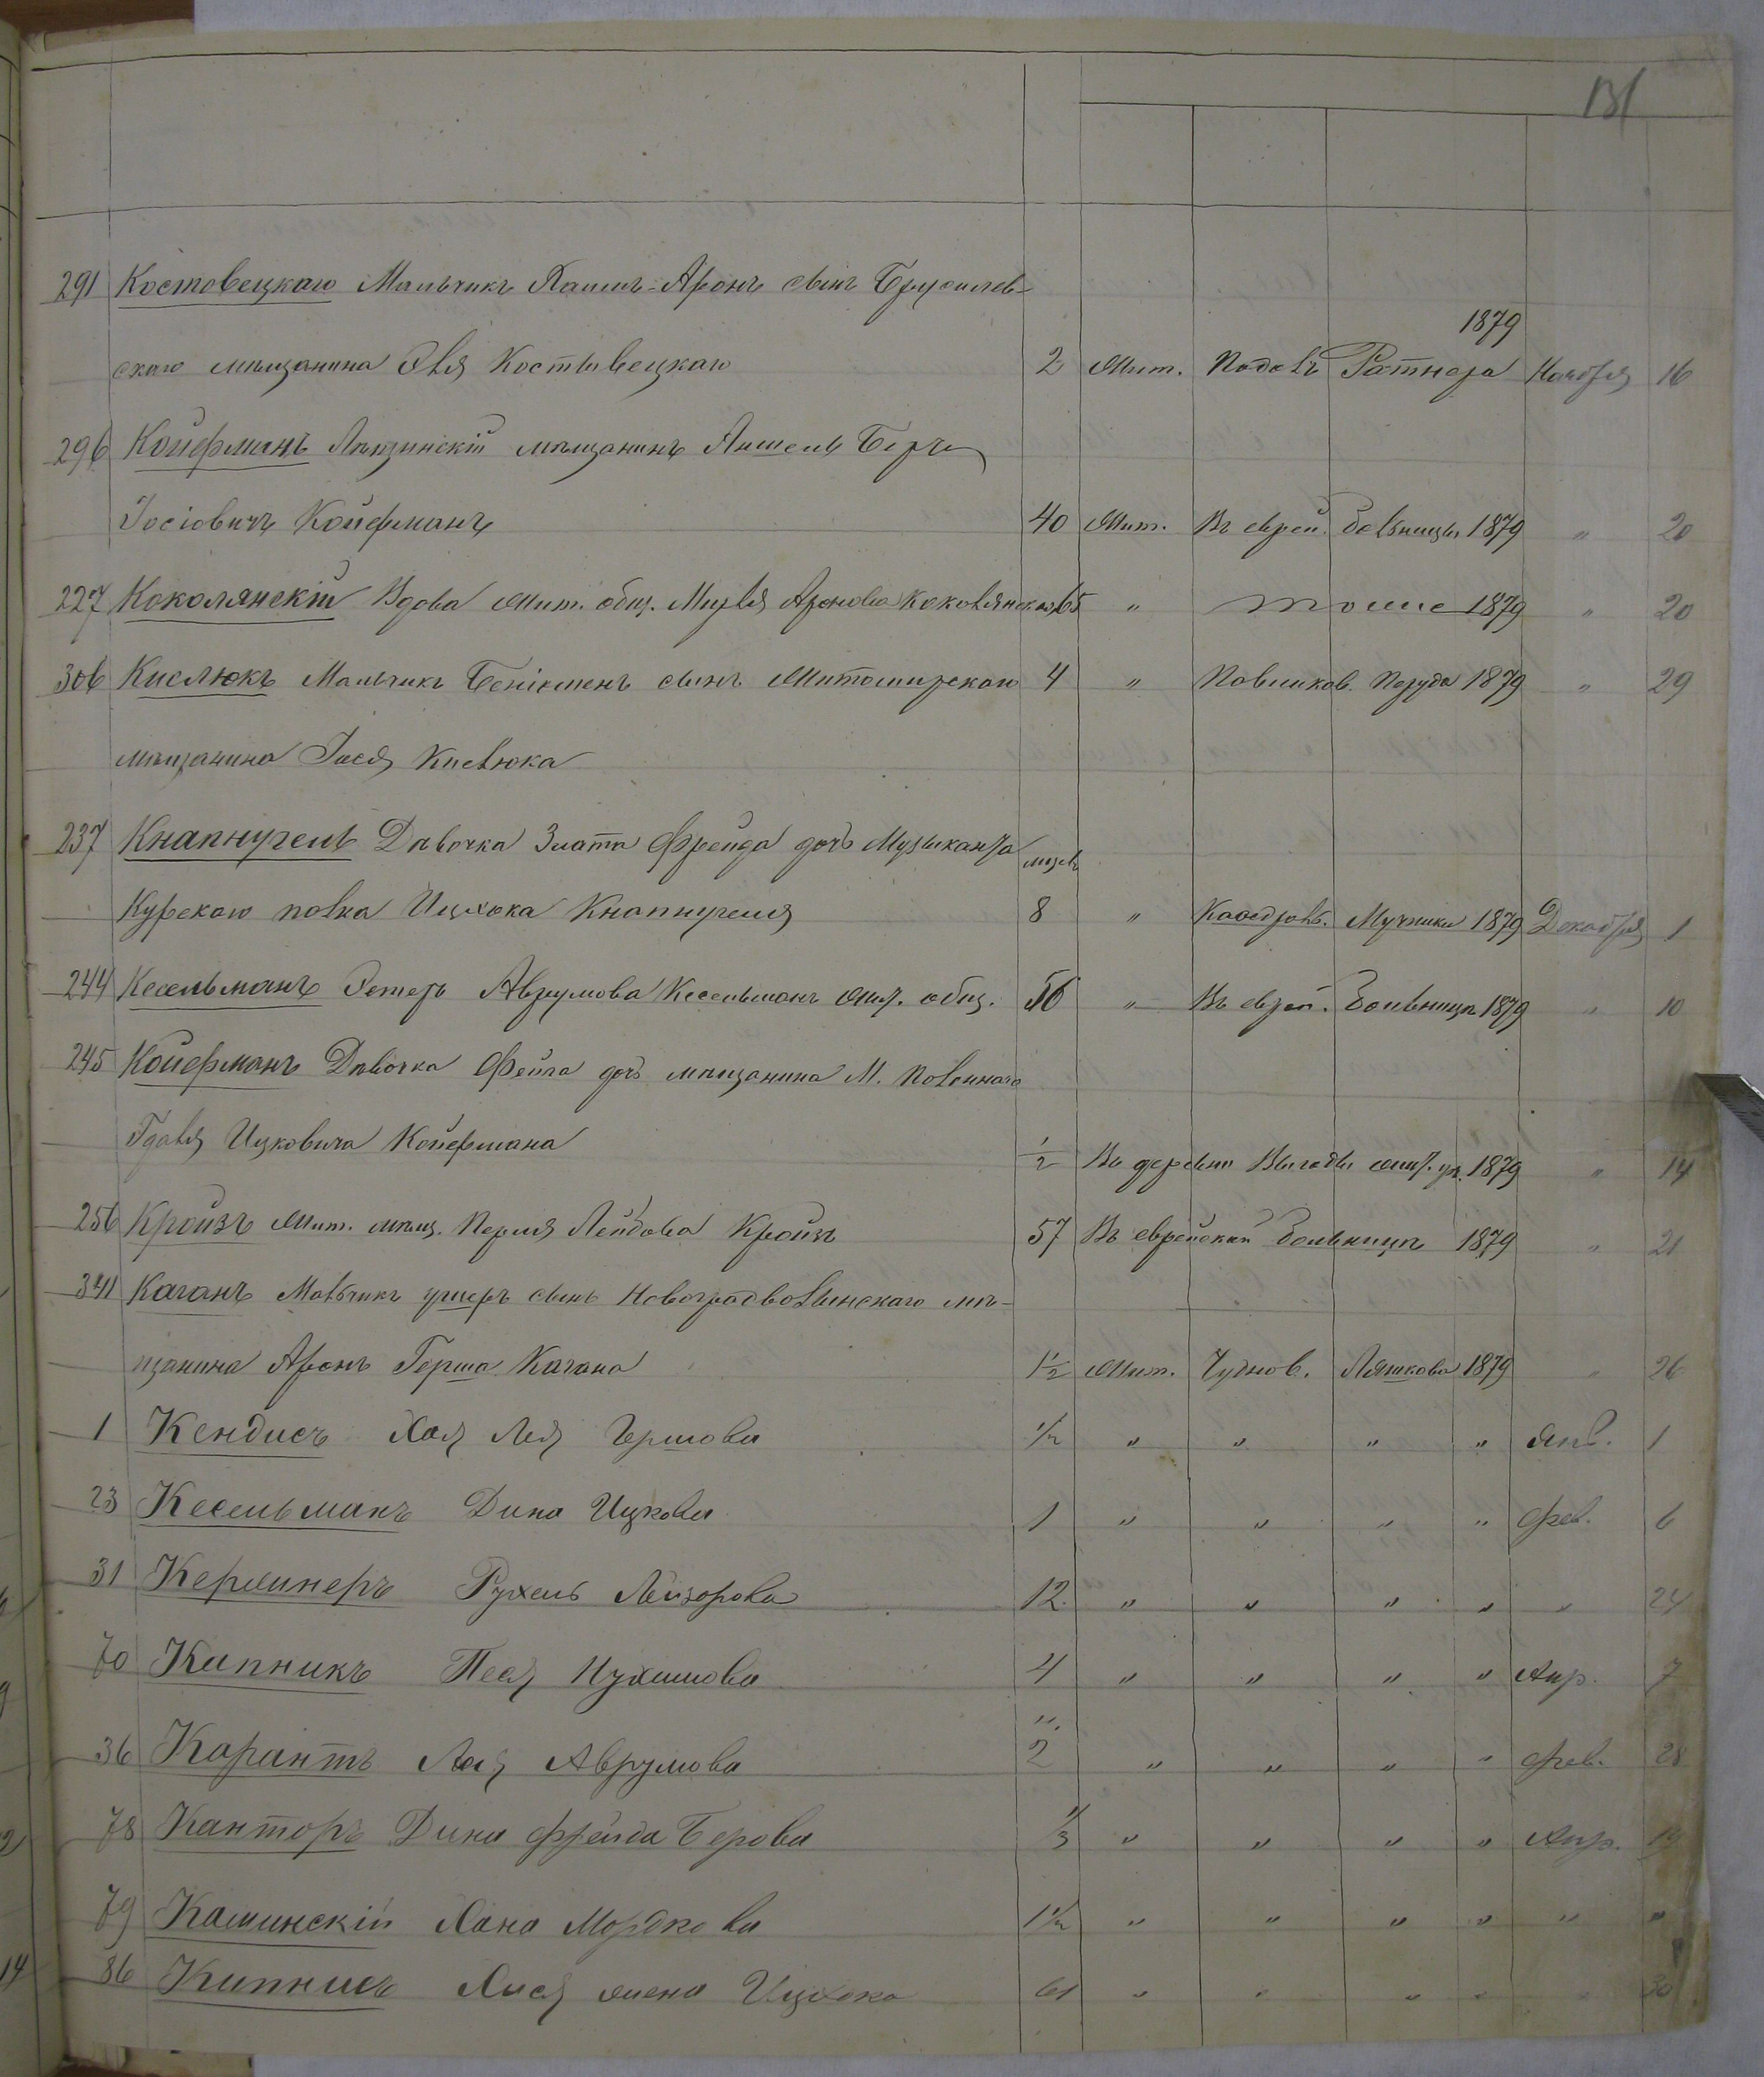 131
291 Костовецкаго Мальчикъ Хаимъ-Аронъ сынъ Брусилев-
1879
скаго мѣщанина Овля Костовецкаго 2 Жит. Подолъ Ратнера Ноября 16
296 Койфманъ мѣщанинъ Аншель Берко
Іосіовичъ Койфманъ 40 Жит. Въ еврей. больницы 1879 " 20
227 Коколянскій Вдова Жит. общ. Аронова Коколянская 65 " тоже 1879 " 20
306 Кислюкъ Мальчикъ сынъ Житомирскаго 4 " 1879 " 29
мѣщанина Іося Кислюка
237 Кнапнугель Дѣвочка Злата Фрейда дочь Музыканта мѣсяц.
Курскаго полка Ицхока Кнапнугеля 8 " Каѳедраль. Мучника 1879 Декабря 1
244 Кесельманъ Эстеръ Аврумова Кесельманъ Жит. общ. 56 " Въ еврей. больницѣ 1879 " 10
245 Койфманъ Дѣвочка Фейга дочь мѣщанина М. Полоннаго
Гдаля Ицковича Койфмана 1/2 Въ деревнѣ Выгоды Жит. уѣ. 1879 " 14
256 Кройзъ Жит. мѣщ. Перля Лейбова Кройзъ 57 Въ еврейской больницѣ 1879 " 21
341 Каганъ Мальчикъ умеръ сынъ Новоградволынскаго мѣ-
щанина Аронъ Герша Кагана 1 1/2 Жит. Чуднов. Ляшкова 1879 " 26
1 Кендисъ Хая Лея Гершова 1/2 " " " " Янв. 1
23 Кесельманъ Дина Ицкова 1 " " " " Фев. 6
31 Кержнеръ Рухель Лейзорова 12 " " " " " 24
70 Кипникъ Песя Нухимова 4 " " " " Апр. 7
36 Карантъ Лея Аврумова 2 " " " " Фев. 28
78 Канторъ Дина Фрейда Берова 1/3 " " " " Апр. 19
79 Каминскій Хана Мордкова 1 1/2 " " " " " "
86 Кипнисъ Хася жена Ицхока 61 " " " " " 30